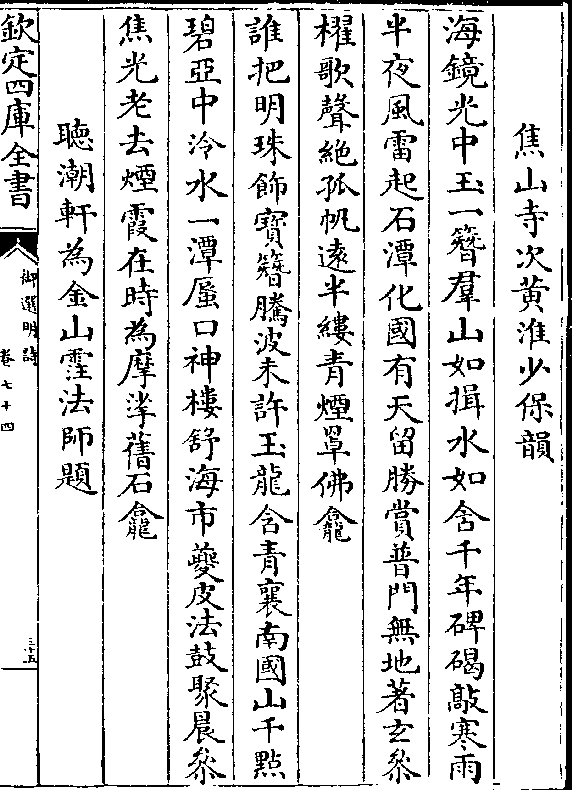 焦山寺次黃淮少保韻
海鏡光中玉一簪羣山如揖水如舍千年碑碣敲寒雨
半夜風雷起石潭化國有天留勝賞普門無地著玄叅
櫂歌聲絶孤帆逺半縷青煙罩佛龕
誰把明珠飾寶簪騰波未許玉龍含青襄南國山千點
碧亞中泠水一潭蜃口神樓舒海市夔皮法鼓聚晨叅
焦光老去煙霞在時為摩挲舊石龕
聽潮軒為金山霔法師題
欽定四庫全書
御選明詩
卷七十四
三十五